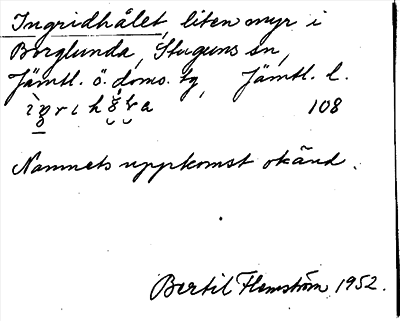 Ingridhålet, liten myr i
Borglunda, Stuguns sn,
Jämtl. ö. doms. tg, Jämtl. l.
108
Namnets uppkomst okänd.
Bertil Flemström 1952.